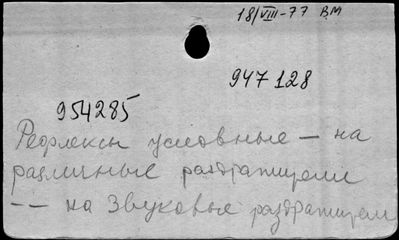 18/VIII-77 ВМ
947 128
954285
Рефлексы условные — на
различные раздражители
-- на звуковые раздражители